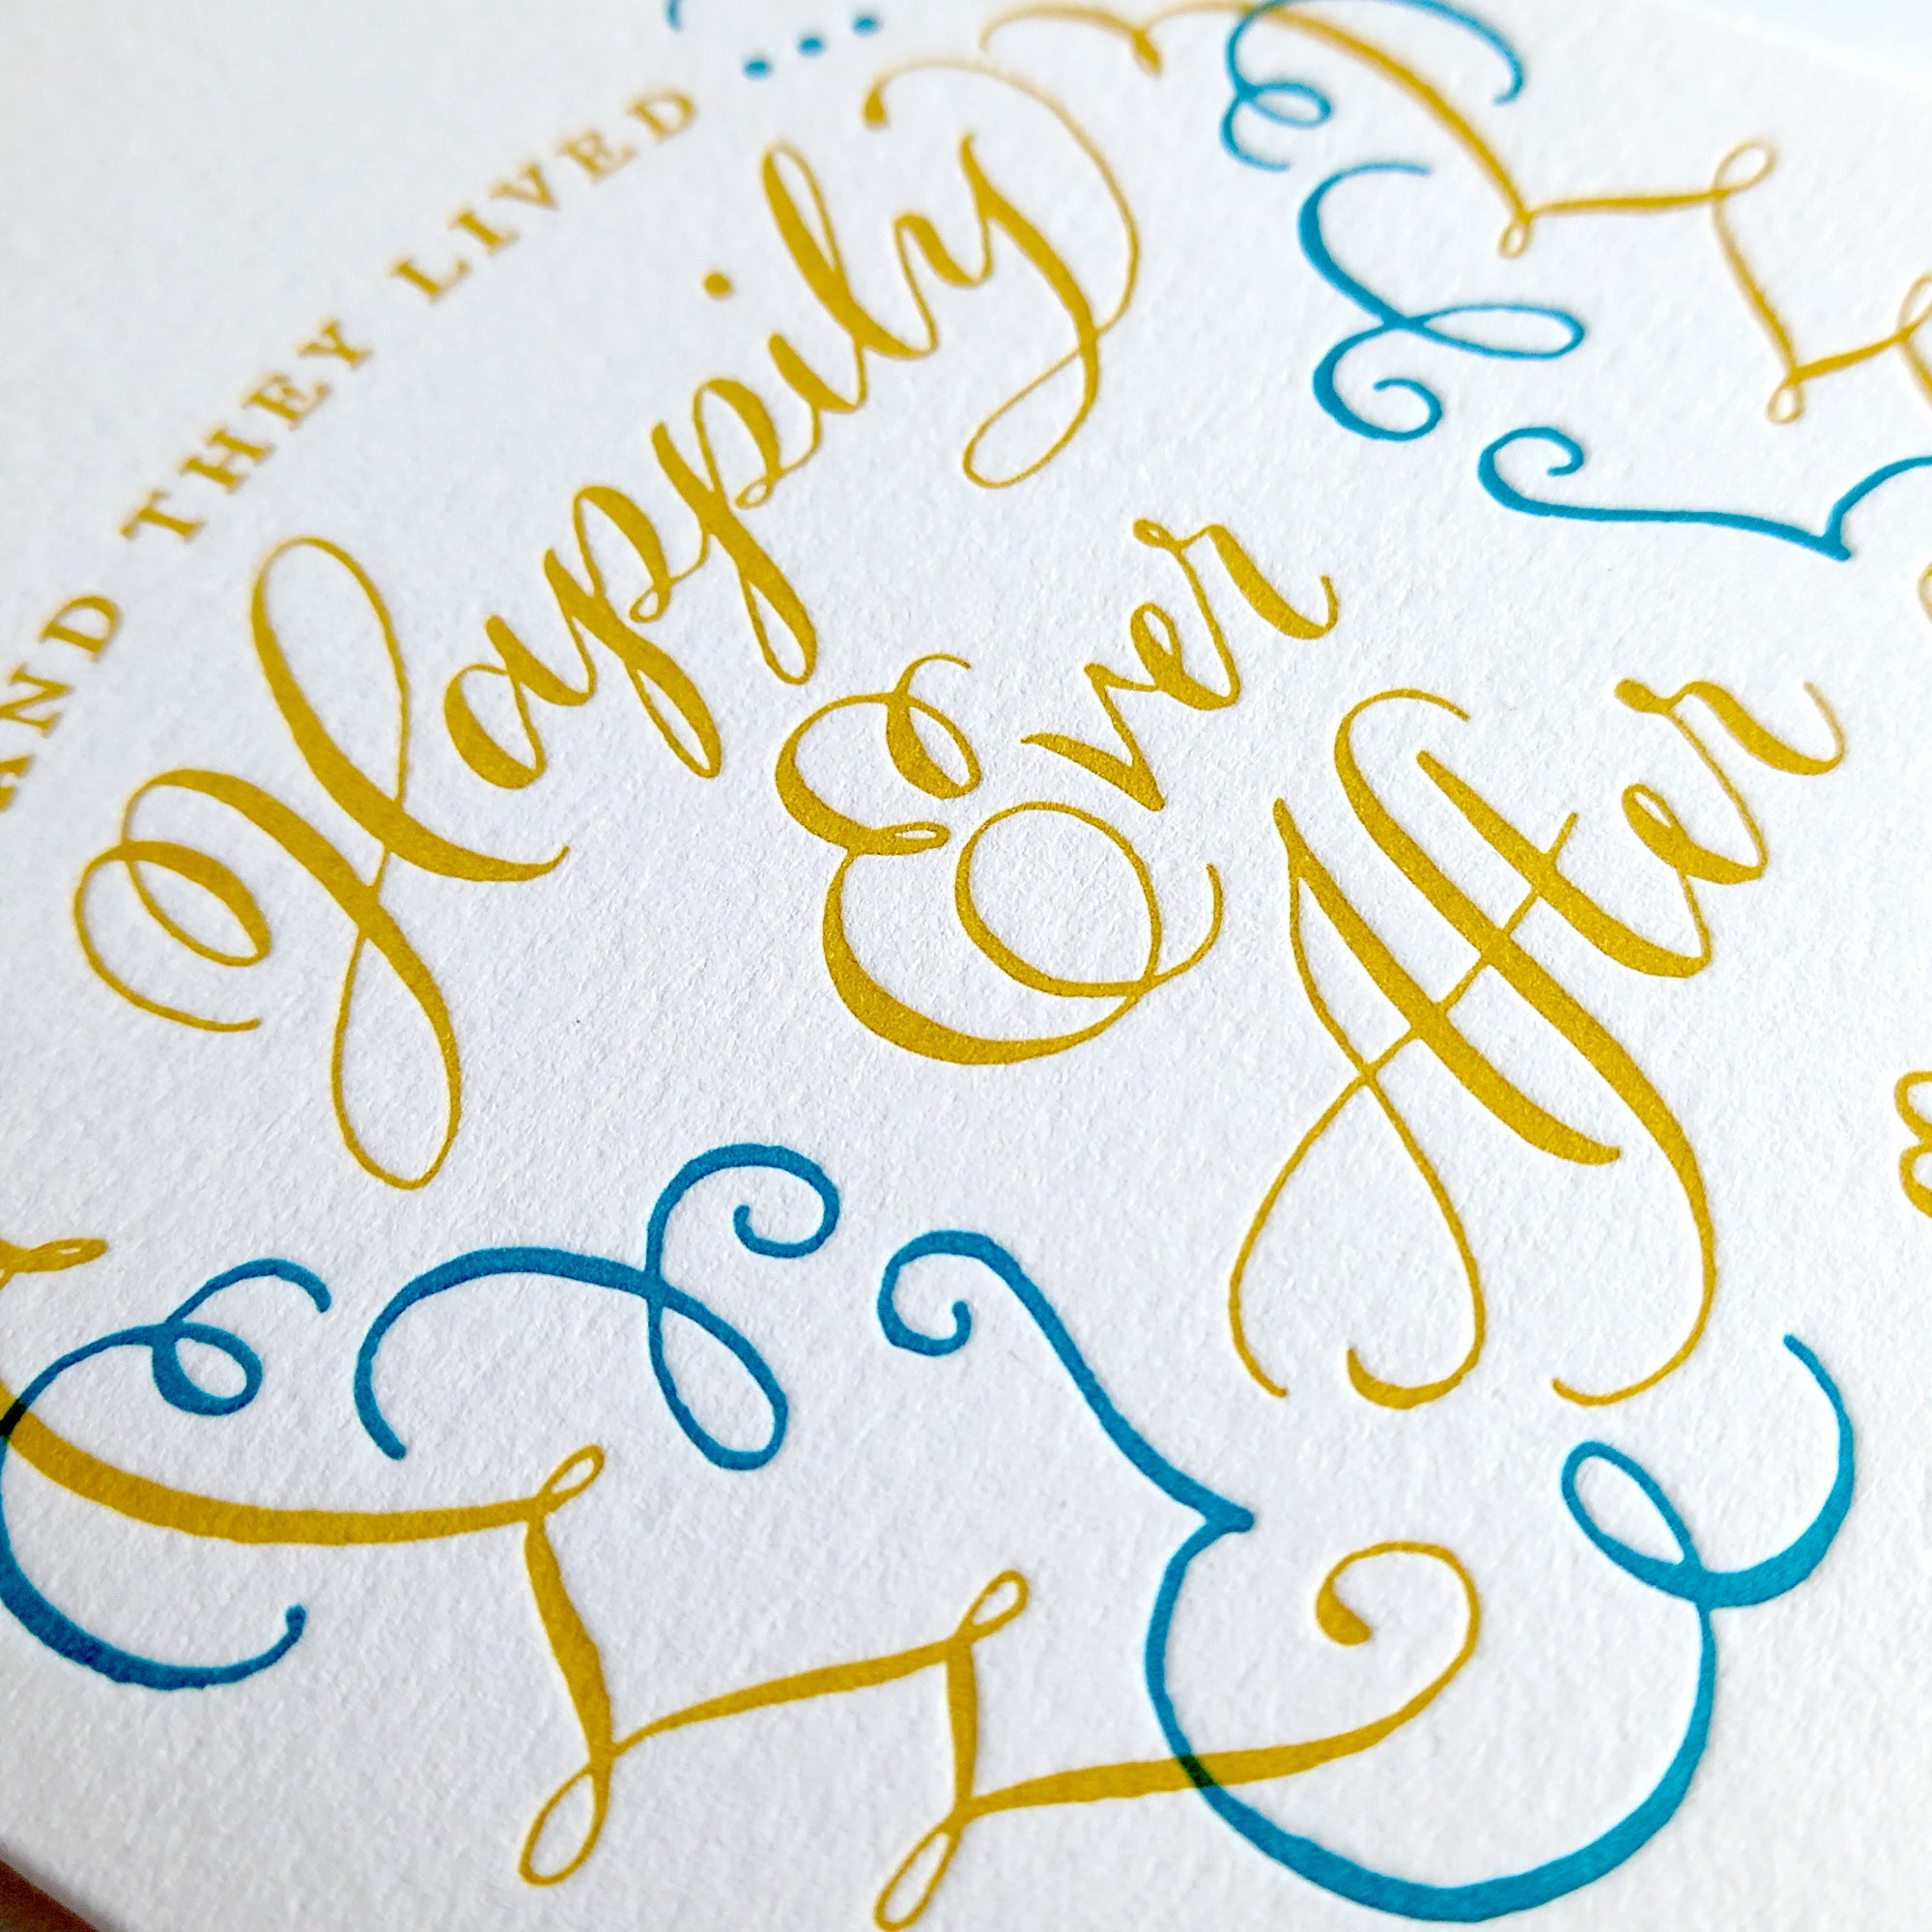 AND THEY LIVED ...
Happily
Ever
After